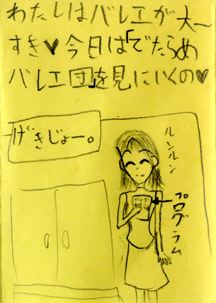 わたしはバレエが大〜
すき♥今日は「でたらめ
バレエ団」を見にいくの♥
げきじょー。
ルンルン
プログラム